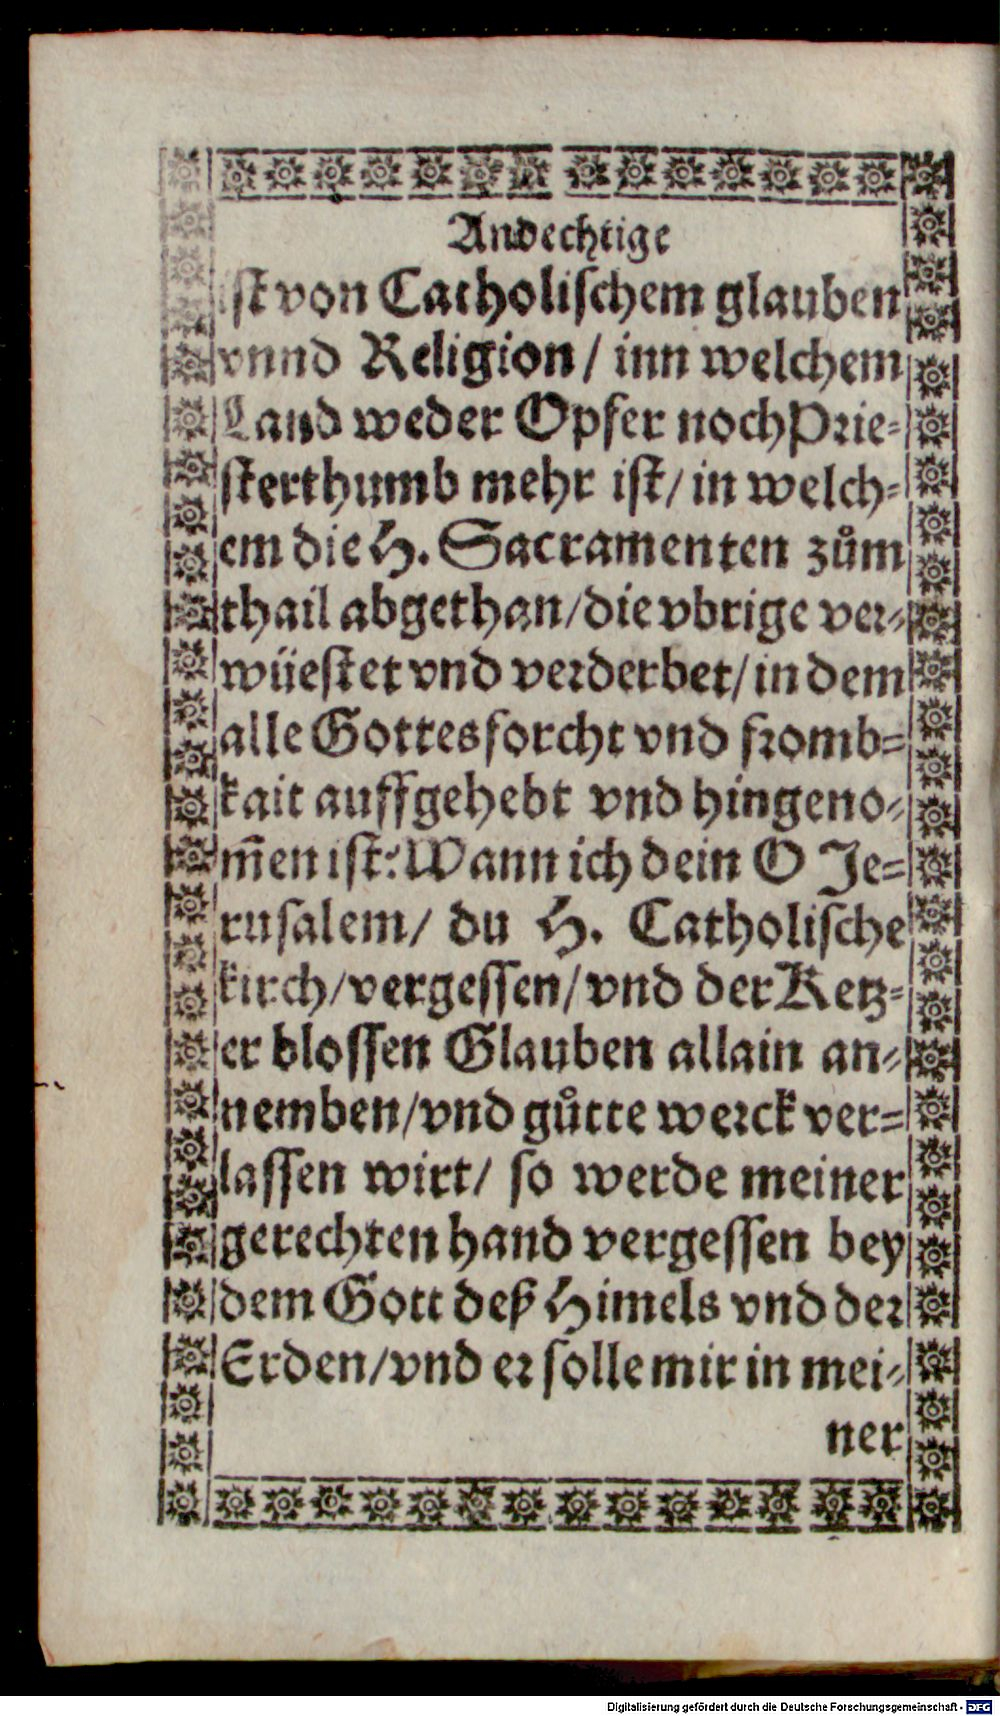 Andechtige
iſt von Catholiſchem glauben
vnnd Religion/ inn welchem
Land weder Opfer noch Prie-
ſterthumb mehr iſt/ in welch-
em die H. Sacramenten zům
thail abgethan/ die vbrige ver-
wüeſtet vnd verderbet/ in dem
alle Gottesforcht vnd fromb-
kait auffgehebt vnd hingeno-
m̃en iſt: Wann ich dein O Je-
ruſalem/ du H. Catholiſche
kirch/ vergeſſen/ vnd der Ketz-
er bloſſen Glauben allain an-
nemben/ vnd gůtte werck ver-
laſſen wirt/ ſo werde meiner
gerechten hand vergeſſen bey
dem Gott deß Himels vnd der
Erden/ vnd er ſolle mir in mei-
ner
Digitalisierung gefördert durch die Deutsche Forschungsgemeinschaft - DFG